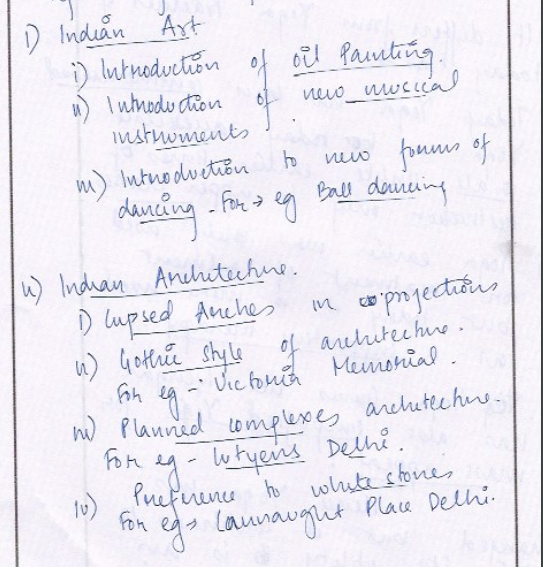 i) Indian Art
i) Introduction of oil Painting.
ii) Introduction of new musical
instruments.
iii) Introduction to new forms of
dancing - For → eg Ball dancing
ii) Indian Architecture.
i) Cupsed Arches in projections
ii) Gothic style of architecture.
For eg - Victoria Memorial.
iii) Planned complexes architecture.
For eg - Lutyens Delhi.
iv) Preference to white stones
For eg → Cannaught Place Delhi.